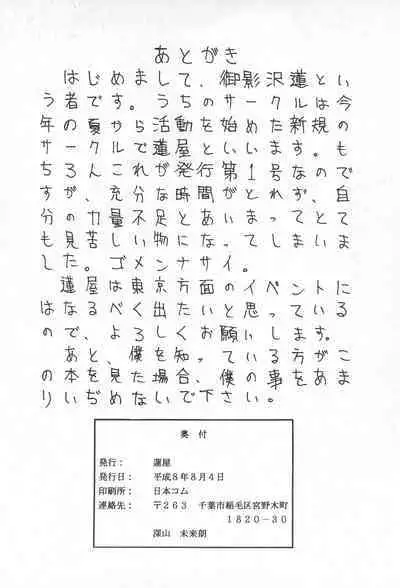 あとがき
はじめまして、御影沢蓮とい
う者です。うちのサークルは今
年の夏から活動を始めた新規の
サークルで蓮屋といいます。も
ちろんこれが発行第1号なので
すが、充分な時間がとれず、自
分の力量不足とあいまってとて
も見苦しい物になってしまいま
した。ゴメンナサイ。
蓮屋は東京方面のイベントに
はなるべく出たいと思っている
ので、よろしくお願いします。
あと、僕を知っている方がこ
の本を見た場合、僕の事をあま
りいぢめないで下さい。
奥付
発行: 蓮屋
発行日: 平成8年8月4日
印刷所: 日本コム
連絡先: 〒263 千葉市稲毛区宮野木町
1820-30
深山 未来朗